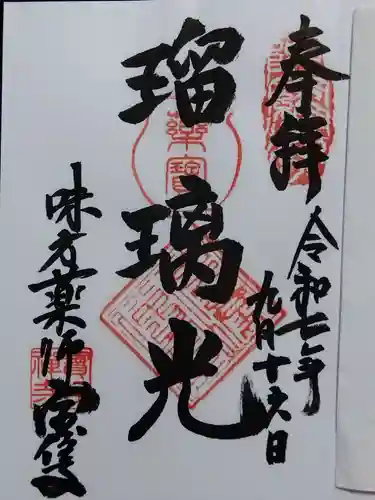 奉拝
令和七年
九月十六日
瑠璃光
味方薬師